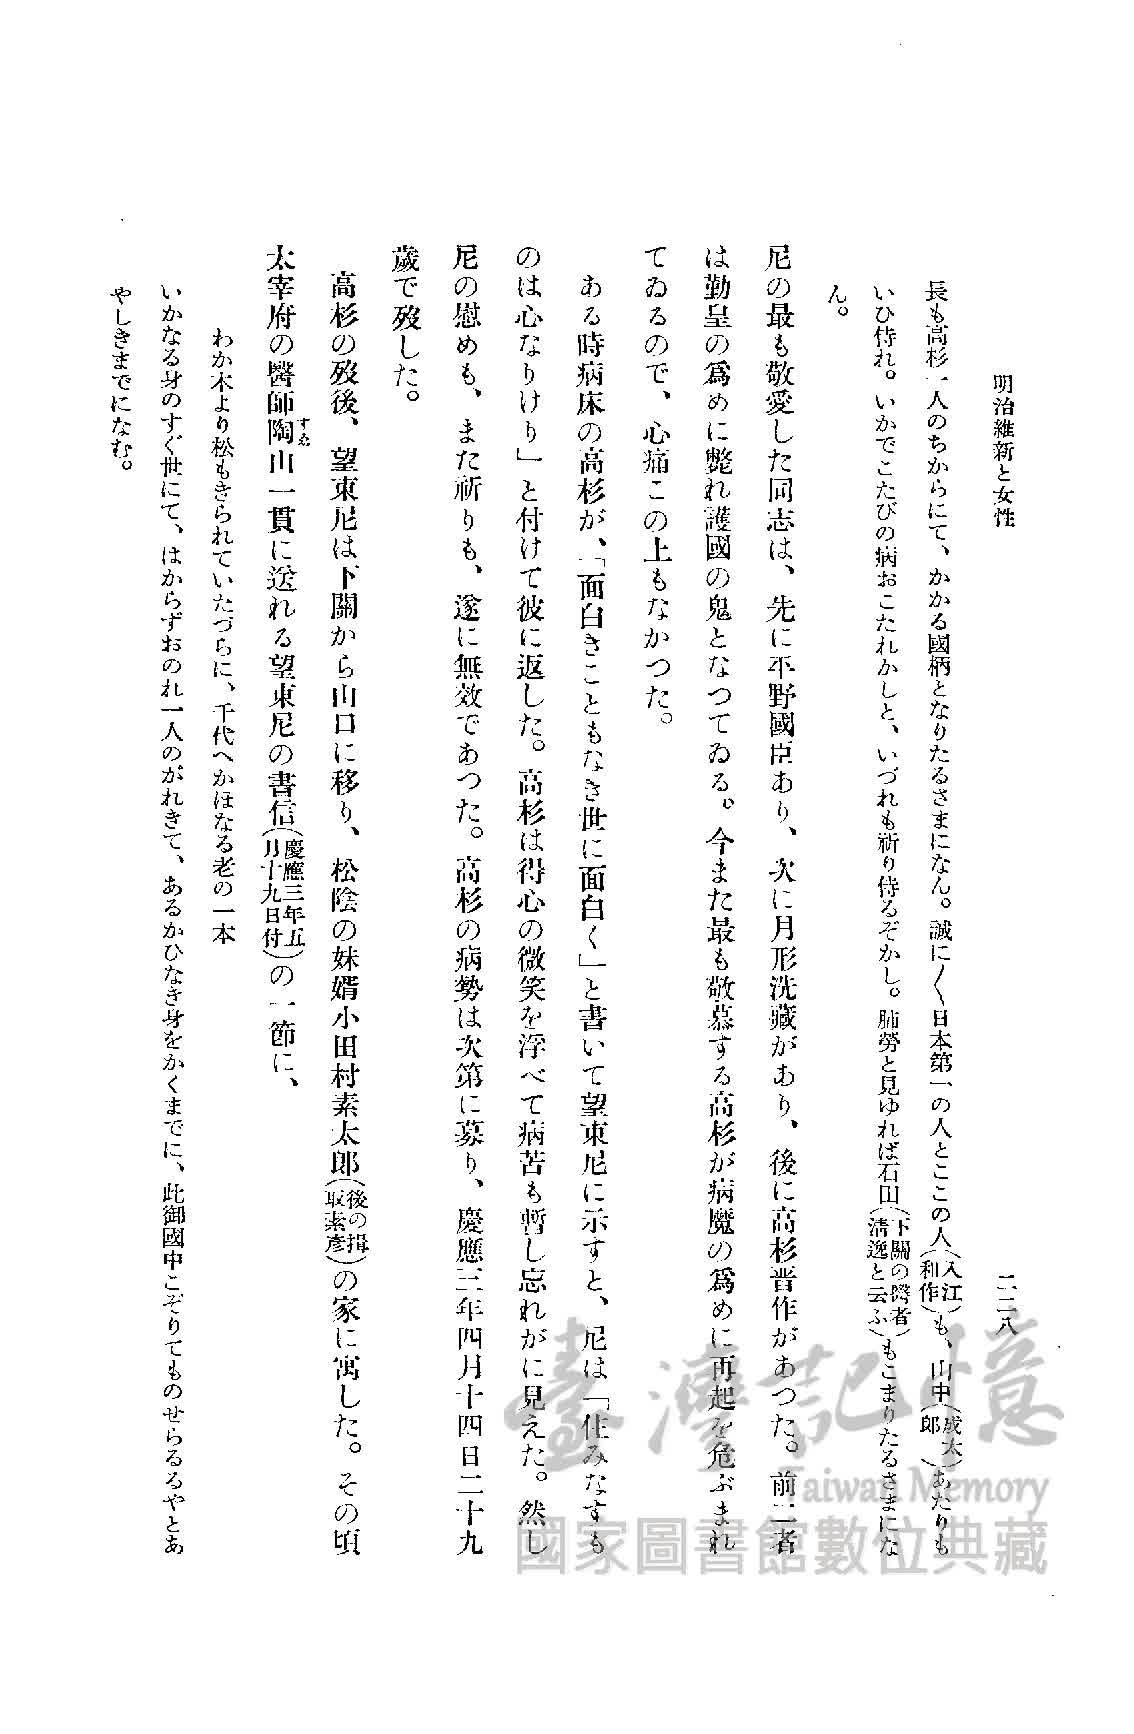 明治維新と女性
二二八
長も高杉一人のちからにて、かかる國柄となりたるさまになん。誠に〱日本第一の人とここの人(入江和作)も、山中(成太郎)あたりも
いひ侍れ。いかでこたびの病おこたれかしと、いづれも祈り侍るぞかし。肺勞と見ゆれば石田(下關の醫者淸逸と云ふ)もこまりたるさまにな
ん。
尼の最も敬愛した同志は、先に平野國臣あり、次に月形洗藏があり、後に高杉晋作があつた。前二者
は勤皇の爲めに斃れ護國の鬼となつてゐる。今また最も敬慕する高杉が病魔の爲めに再起を危ぶまれ
てゐるので、心痛この上もなかつた。
ある時病床の高杉が、「面白きこともなき世に面白く」と書いて望東尼に示すと、尼は「住みなすも
のは心なりけり」と付けて彼に返した。高杉は得心の微笑を浮べて病苦も暫し忘れがに見えた。然し
尼の慰めも、また祈りも、遂に無效であつた。高杉の病勢は次第に募り、慶應三年四月十四日二十九
歲で歿した。
高杉の歿後、望東尼は下關から山口に移り、松陰の妹婿小田村素太郎(後の揖取素彥)の家に寓した。その頃
太宰府の醫師陶山一貫に送れる望東尼の書信(慶應三年五月十九日付)の一節に、
すゑ
わか木より松もきられていたづらに、千代へかほなる老の一本
いかなる身のすぐ世にて、はからずおのれ一人のがれきて、あるかひなき身をかくまでに、此御國中こぞりてものせらるるやとあ
やしきまでになむ。
臺灣記憶
Taiwan Memory
國家圖書館數位典藏